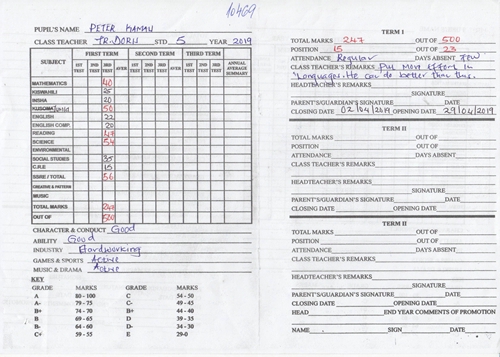 10469
PUPIL'S NAME PETER KAMAU
CLASS TEACHER TR. DORIS STD 5 YEAR 2019
FIRST TERM SECOND TERM THIRD TERM
SUBJECT 1ST TEST 2ND TEST 3RD TEST AVER 1ST TEST 2ND TEST 3RD TEST AVER 1ST TEST 2ND TEST 3RD TEST AVER ANNUAL AVERAGE SUMMARY
MATHEMATICS 40
KISWAHILI 25
INSHA 20
KUSOMA 50
ENGLISH 22
ENGLISH COMP. 20
READING 47
SCIENCE 54
ENVIRONMENTAL
SOCIAL STUDIES 35
C.R.E 15
SSRE / TOTAL 56
CREATIVE & PATTERN
MUSIC
TOTAL MARKS 247
OUT OF 500
CHARACTER & CONDUCT Good
ABILITY Good
INDUSTRY Hardworking
GAMES & SPORTS Active
MUSIC & DRAMA Active
KEY
GRADE MARKS GRADE MARKS
A 80 - 100 C 54 - 50
A- 79 - 75 C- 49 - 45
B+ 74 - 70 B+ 44 - 40
B 69 - 65 D 39 - 35
B- 64 - 60 D- 34 - 30
C+ 59 - 55 E 29-0
TERM I
TOTAL MARKS 247 OUT OF 500
POSITION 15 OUT OF 23
ATTENDANCE Regular DAYS ABSENT FEW
CLASS TEACHER'S REMARKS Put more effort in
Languages. He can do better than this.
HEADTEACHER'S REMARKS
SIGNATURE
PARENT'S/GUARDIAN'S SIGNATURE
CLOSING DATE 02/04/2019 OPENING DATE 29/04/2019
TERM II
TOTAL MARKS OUT OF
POSITION OUT OF
ATTENDANCE DAYS ABSENT
CLASS TEACHER'S REMARKS
HEADTEACHER'S REMARKS
SIGNATURE
PARENT'S/GUARDIAN'S SIGNATURE
CLOSING DATE OPENING DATE
TERM II
TOTAL MARKS OUT OF
POSITION OUT OF
ATTENDANCE DAYS ABSENT
CLASS TEACHER'S REMARKS
HEADTEACHER'S REMARKS
SIGNATURE
PARENT'S/GUARDIAN'S SIGNATURE
CLOSING DATE OPENING DATE
HEAD END YEAR COMMENTS OF PROMOTION
NAME SIGN DATE